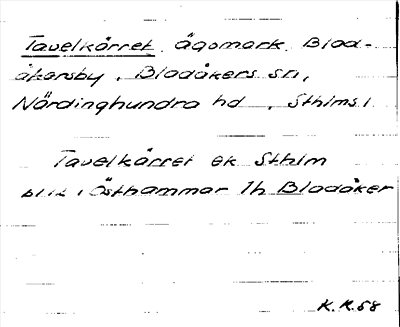 Tavelkärret, ägomark, Blad-
åkersby, Bladåkers sn,
Närdinghundra hd, Sthlms l
Tavelkärret ek Sthlm
Östhammar 1h Bladåker
K.R.58